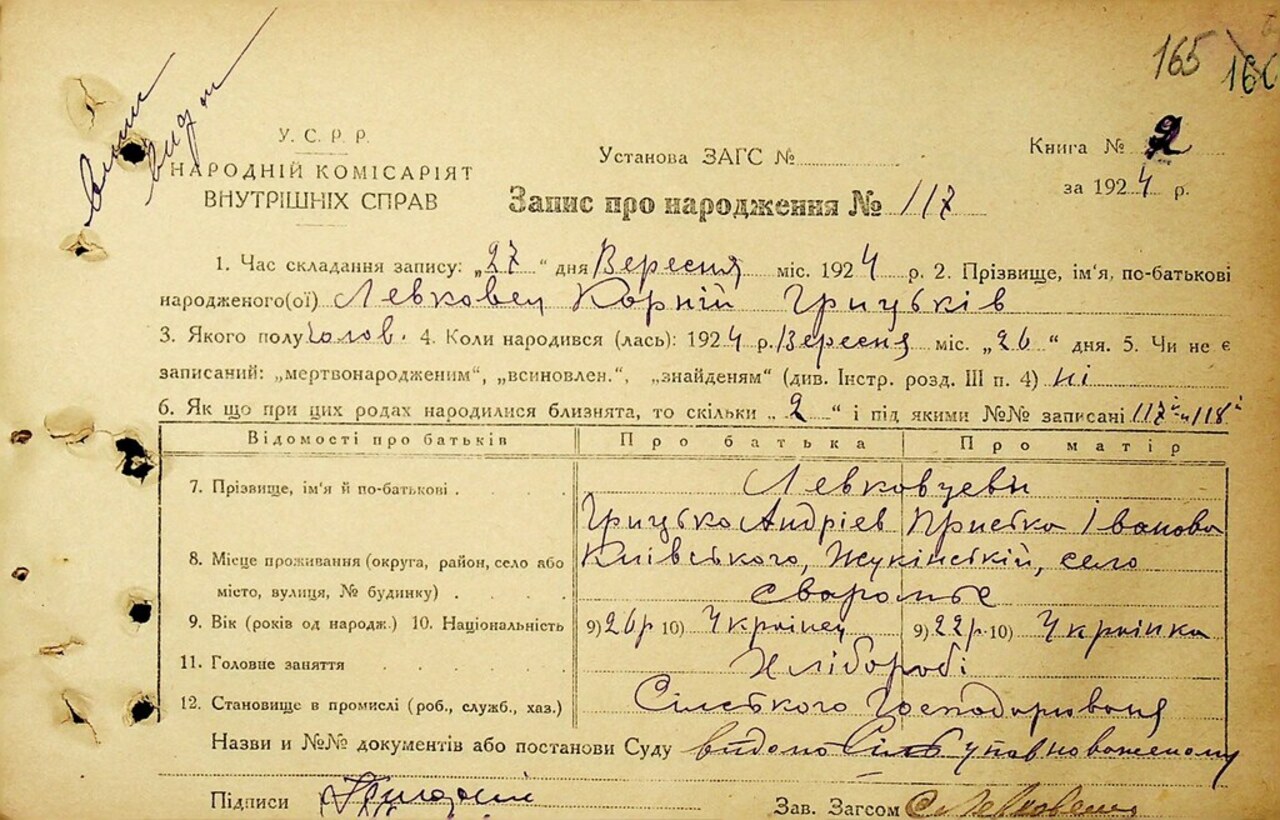 165 166
У. С. Р. Р.
НАРОДНІЙ КОМІСАРІЯТ
ВНУТРІШНІХ СПРАВ
Установа ЗАГС №
Книга № 2
за 1924 р.
Запис про народження № 117
1. Час складання запису: „27“ дня Вересня міс. 1924 р. 2. Прізвище, ім'я, по-батькові
народженого(ої) Левковец Корній Грицьків
3. Якого полу Чолов. 4. Коли народився (лась): 1924 р. Вересня міс. „26“ дня. 5. Чи не є
записаний: „мертвонародженим“, „всиновлен.“, „знайденям“ (див. Інстр. розд. III п. 4) ні
6. Як що при цих родах народилися близнята, то скільки „2“ і під якими №№ записані 117й и 118й
Відомості про батьків Про батька Про матір
7. Прізвище, ім'я й по-батькові Левковцеви
Грицько Андріев Приська Іванова
8. Місце проживання (округа, район, село або Київського, Жукінській, село
місто, вулиця, № будинку) Сваромье
9. Вік (років од народж.) 10. Національність 9) 26 р 10) Українец 9) 22 р. 10) Українка
11. Головне заняття Хлібороbі
12. Становище в промислі (роб., служб., хаз.) Сілського Господарованя
Назви и №№ документів або постанови Суду видомо Сіль уповноваженому
Підписи
Зав. Загсом Левковець